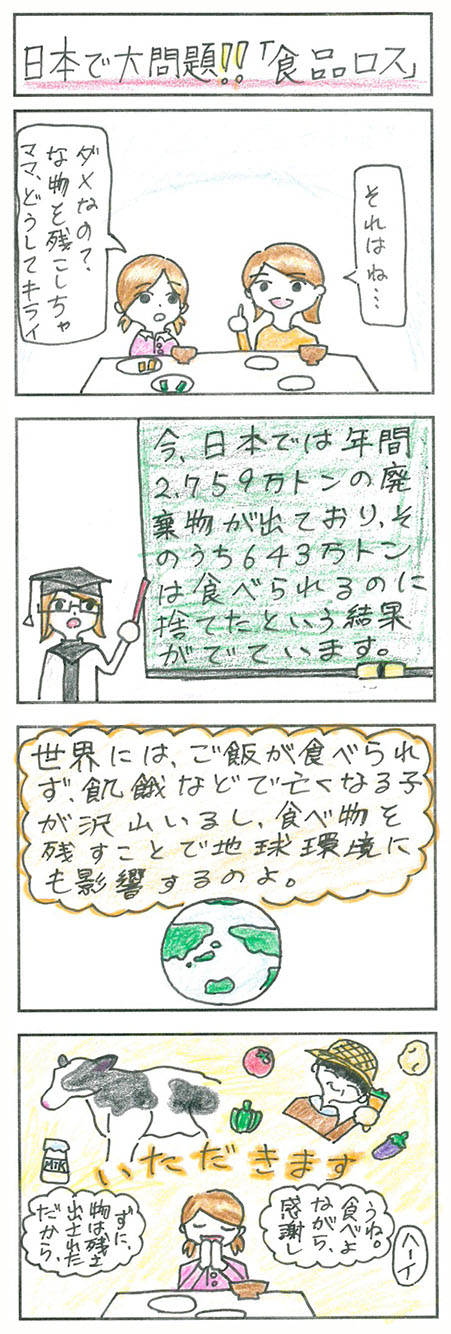 日本で大問題!!「食品ロス」
ママ、どうしてキライ
な物を残こしちゃ
ダメなの?
それはね…
今、日本では年間
2,759万トンの廃
棄物が出ており、そ
のうち643万トン
は食べられるのに
捨てたという結果
がでています。
世界には、ご飯が食べられ
ず、飢餓などで亡くなる子
が沢山いるし、食べ物を
残すことで地球環境に
も影響するのよ。
いただきます
MILK
だから、
出された
物は残さ
ずに、
感謝し
ながら、
食べよ
うね。
ハーイ